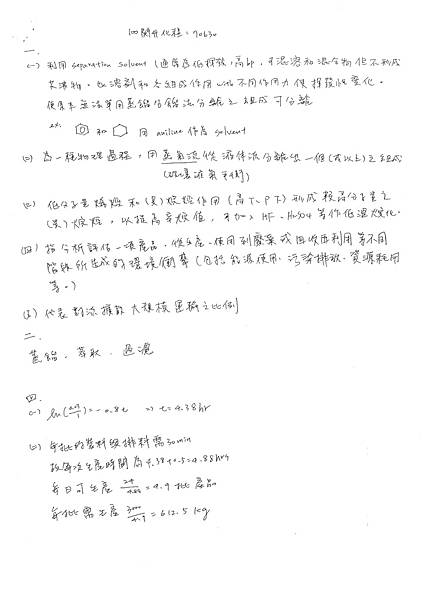 100 關務 化程 : 90630
一.
(一) 利用 separation solvent (通常為低揮發、高bp、可混溶和混合物但不形成
共沸物。如溶劑和各組成作用 with 不同作用力使揮發性變化。
使原本無法單用蒸餾分餾法分離之組成可分離
ex. 和 用 aniline 作為 solvent
(二) 為一種物理過程,用蒸氣流從液體流分離出一個(或以上)之組成
(三) 低分子量烯烴和(異)烷烴作用(高T、P下)形成較高分子量之
(異)烷烴,以提高辛烷值,可加入 HF、H2SO4 等作低溫烷化。
(四) 指分析評估一項產品,從生產、使用到廢棄或回收再利用等不同
階段所造成的環境衝擊(包括能源使用、污染排放、資源耗用
等。)
(五) 代表對流擴散大規模運輸之比例
二.
蒸餾、萃取、過濾
四.
(一) = -0.8t ⇒ t = 4.38 hr
(二) 每批的裝料級排料需30min
故每次生產時間為 4.38+0.5=4.88hrs
每日可生產 24/4.88 = 4.9批產品
每批需生產 3000/4.9 = 612.5 kg